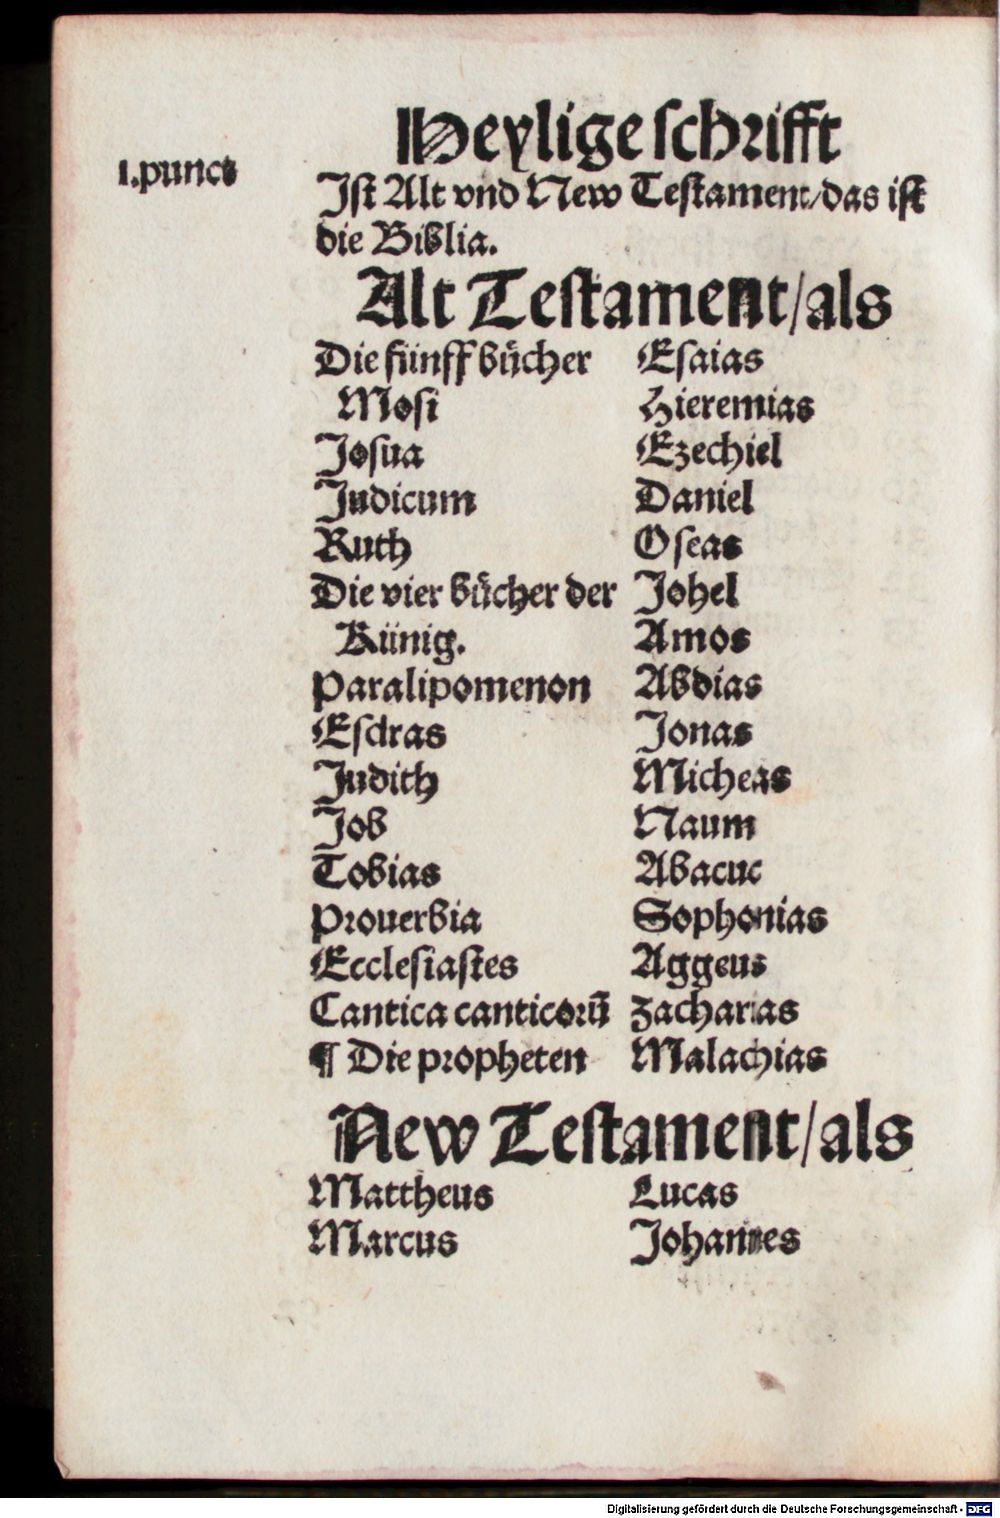 Heylige schrifft
1.punct
Ist Alt vnd New Testament/das ist
die Biblia.
Alt Testament/als
Die fünff bücher
Mosi
Josua
Judicum
Ruth
Die vier bücher der
Künig.
Paralipomenon
Esdras
Judith
Job
Tobias
Prouerbia
Ecclesiastes
Cantica canticorū
¶ Die propheten
Esaias
Hieremias
Ezechiel
Daniel
Oseas
Johel
Amos
Abdias
Jonas
Micheas
Naum
Abacuc
Sophonias
Aggeus
Zacharias
Malachias
New Testament/als
Mattheus
Marcus
Lucas
Johannes
Digitalisierung gefördert durch die Deutsche Forschungsgemeinschaft - DFG